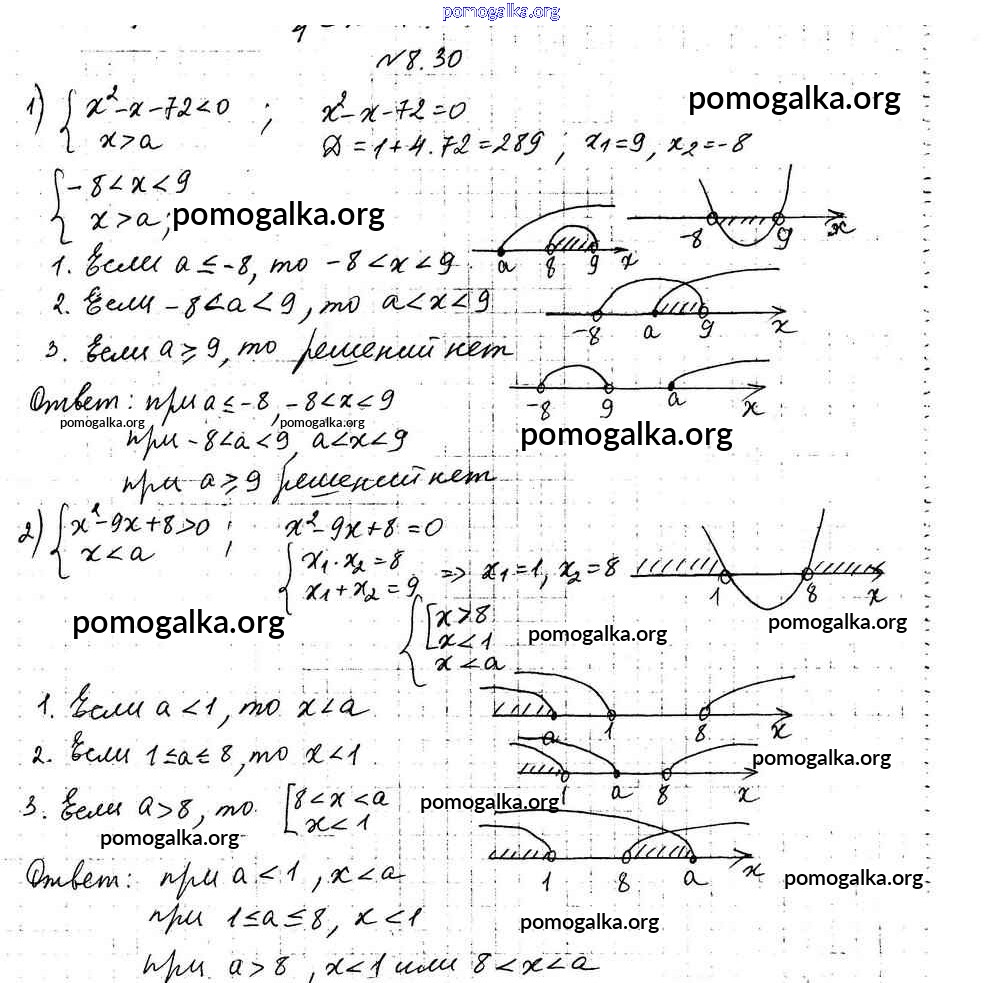 pomogalka.org
№8.30
1) { x² - x - 72 < 0 ; x² - x - 72 = 0 pomogalka.org
x > a Д = 1 + 4·72 = 289 ; x₁ = 9, x₂ = -8
{ -8 < x < 9
x > a; pomogalka.org
-8 9 x
a 8 9 x
1. Если a ≤ -8, то -8 < x < 9
2. Если -8 < a < 9, то a < x < 9
-8 a 9 x
3. Если a ≥ 9, то решений нет
-8 9 a x
Ответ: при a ≤ -8, -8 < x < 9
pomogalka.org pomogalka.org
при -8 < a < 9, a < x < 9 pomogalka.org
при a ≥ 9 решений нет
2) { x² - 9x + 8 > 0 ; x² - 9x + 8 = 0
x < a
{ x₁·x₂ = 8
x₁ + x₂ = 9 => x₁ = 1, x₂ = 8
1 8 x
pomogalka.org pomogalka.org pomogalka.org
{ [ x > 8
x < 1
x < a
1. Если a < 1, то x < a
a 1 8 x
2. Если 1 ≤ a ≤ 8, то x < 1 pomogalka.org
1 a 8 x
3. Если a > 8, то [ 8 < x < a pomogalka.org
x < 1
pomogalka.org
1 8 a x
Ответ: при a < 1, x < a pomogalka.org
при 1 ≤ a ≤ 8, x < 1 pomogalka.org
при a > 8, x < 1 или 8 < x < a